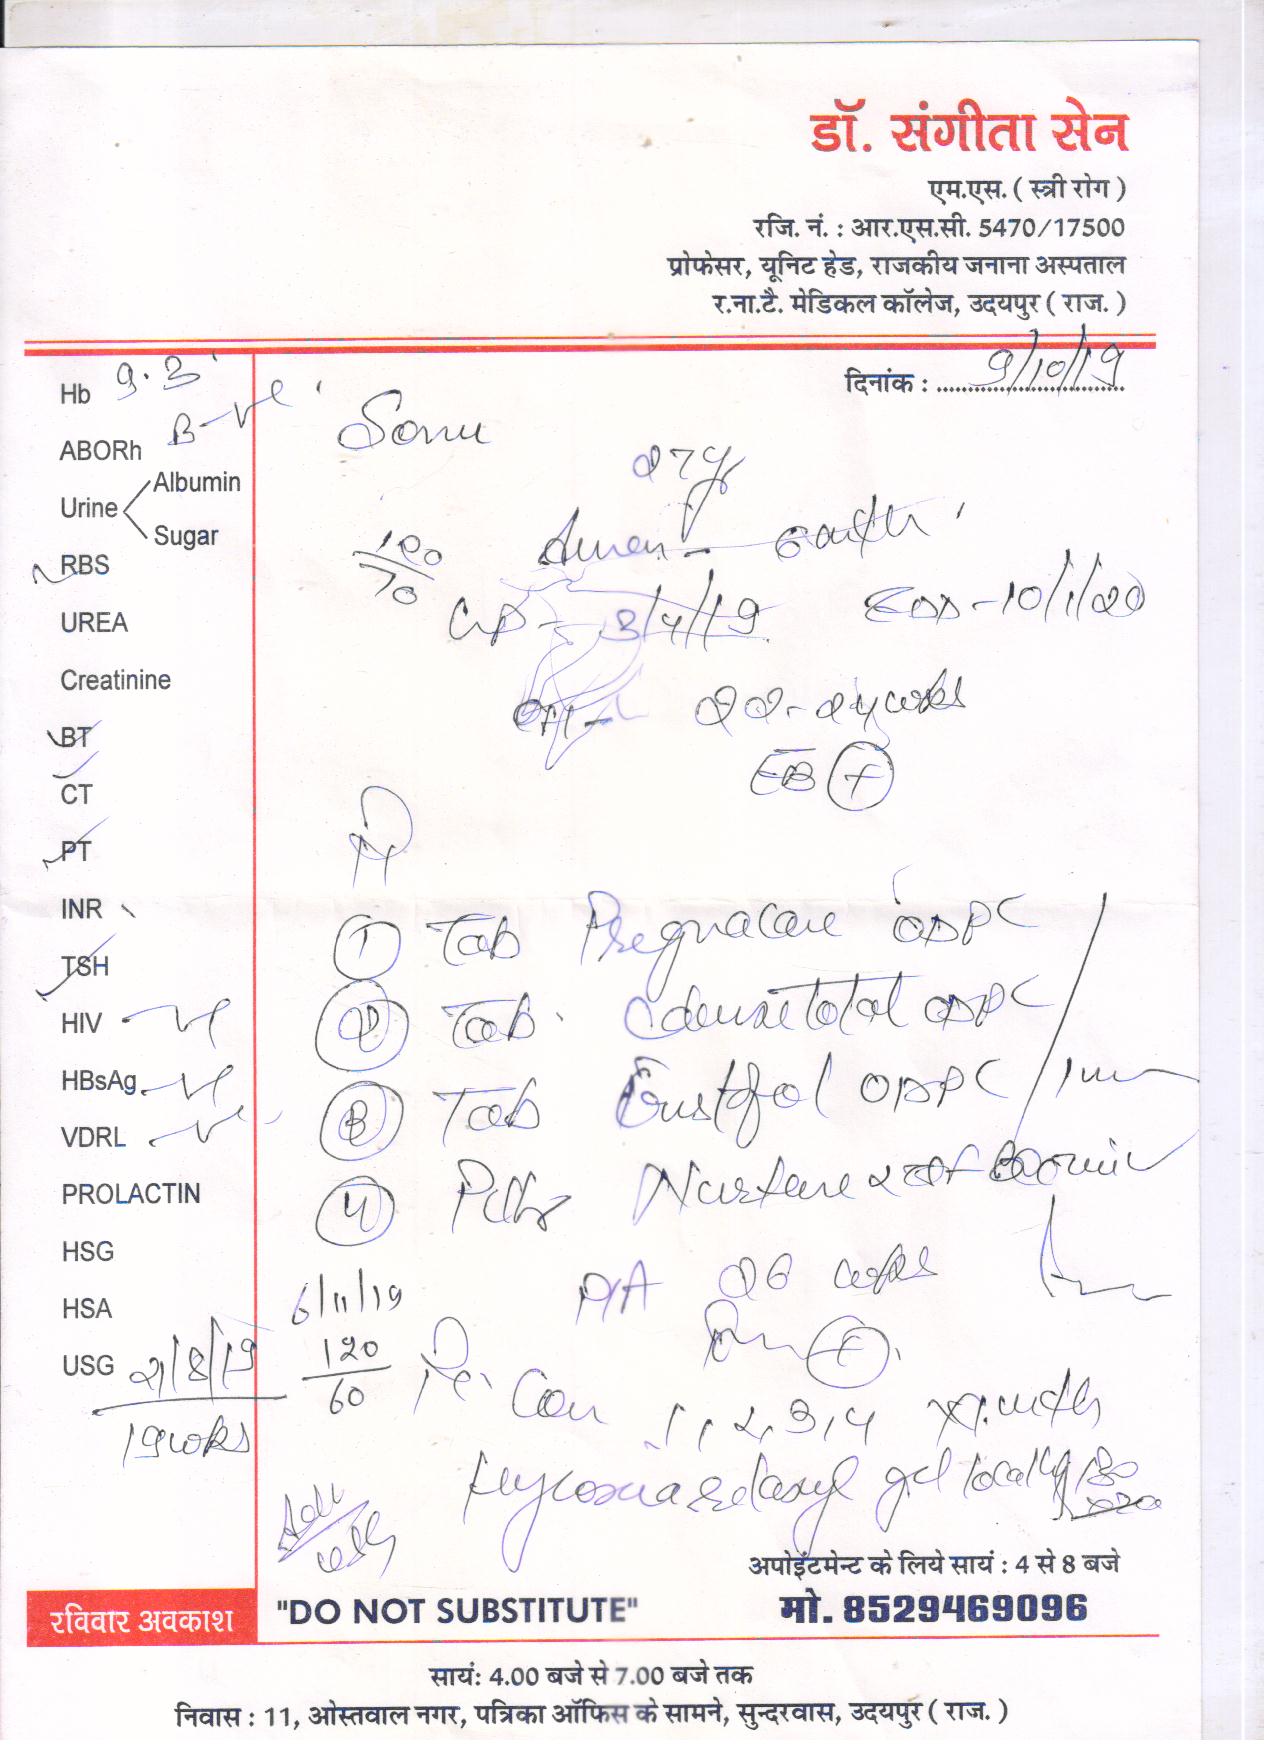 डॉ. संगीता सेन
एम.एस. ( स्त्री रोग )
रजि. नं. : आर.एस.सी. 5470/17500
प्रोफेसर, यूनिट हेड, राजकीय जनाना अस्पताल
र.ना.टै. मेडिकल कॉलेज, उदयपुर ( राज. )
दिनांक : 9/10/19
Hb 9.3
ABORh B-ve
Urine Albumin
Sugar
RBS
UREA
Creatinine
BT
CT
PT
INR
TSH
HIV -ve
HBsAg -ve
VDRL -ve
PROLACTIN
HSG
HSA
USG 21/8/19
19wks
Sonu
27y
Amen - 6 mth
100/70
LMP - 3/4/19 EDD - 10/1/20
22-24 wks
① Tab Pregnacare OD PC
② Tab OD PC
③ Tab OD PC
④ Nurture
P/A 26 wks
6/11/19
120/60
Con 1, 2, 3, 4 x 1 mth
gel locally
अपोइंटमेन्ट के लिये सायं : 4 से 8 बजे
मो. 8529469096
"DO NOT SUBSTITUTE"
रविवार अवकाश
सायं: 4.00 बजे से 7.00 बजे तक
निवास : 11, ओस्तवाल नगर, पत्रिका ऑफिस के सामने, सुन्दरवास, उदयपुर ( राज. )